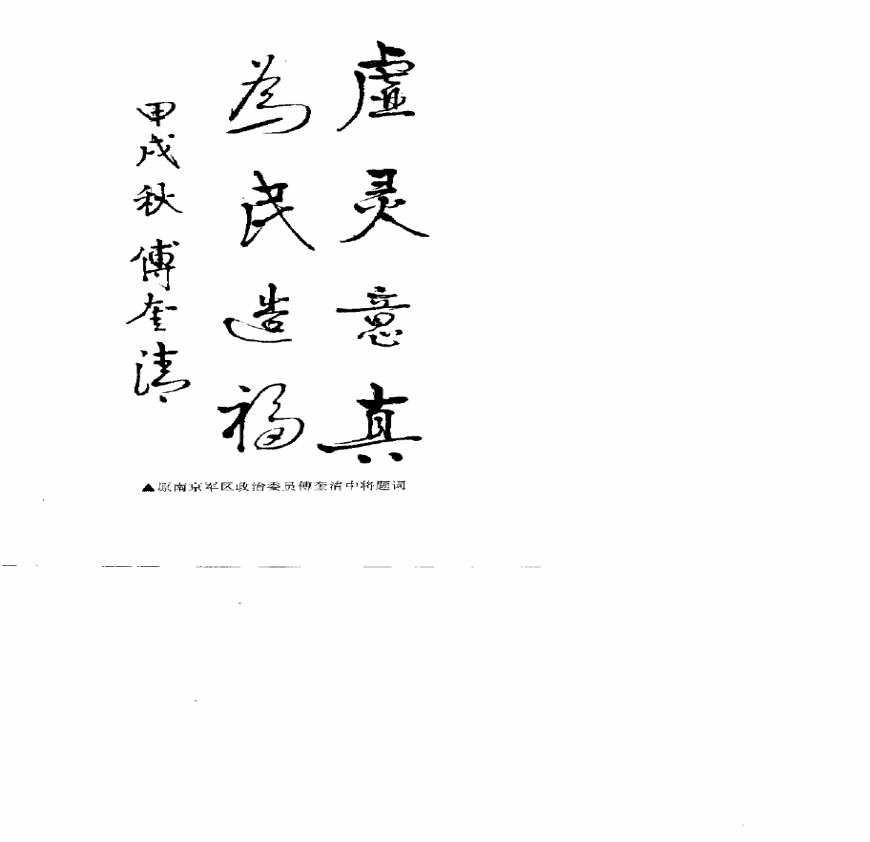 虚灵意真
為民造福
甲戌秋 傅奎清
▲原南京军区政治委员傅奎清中将题词